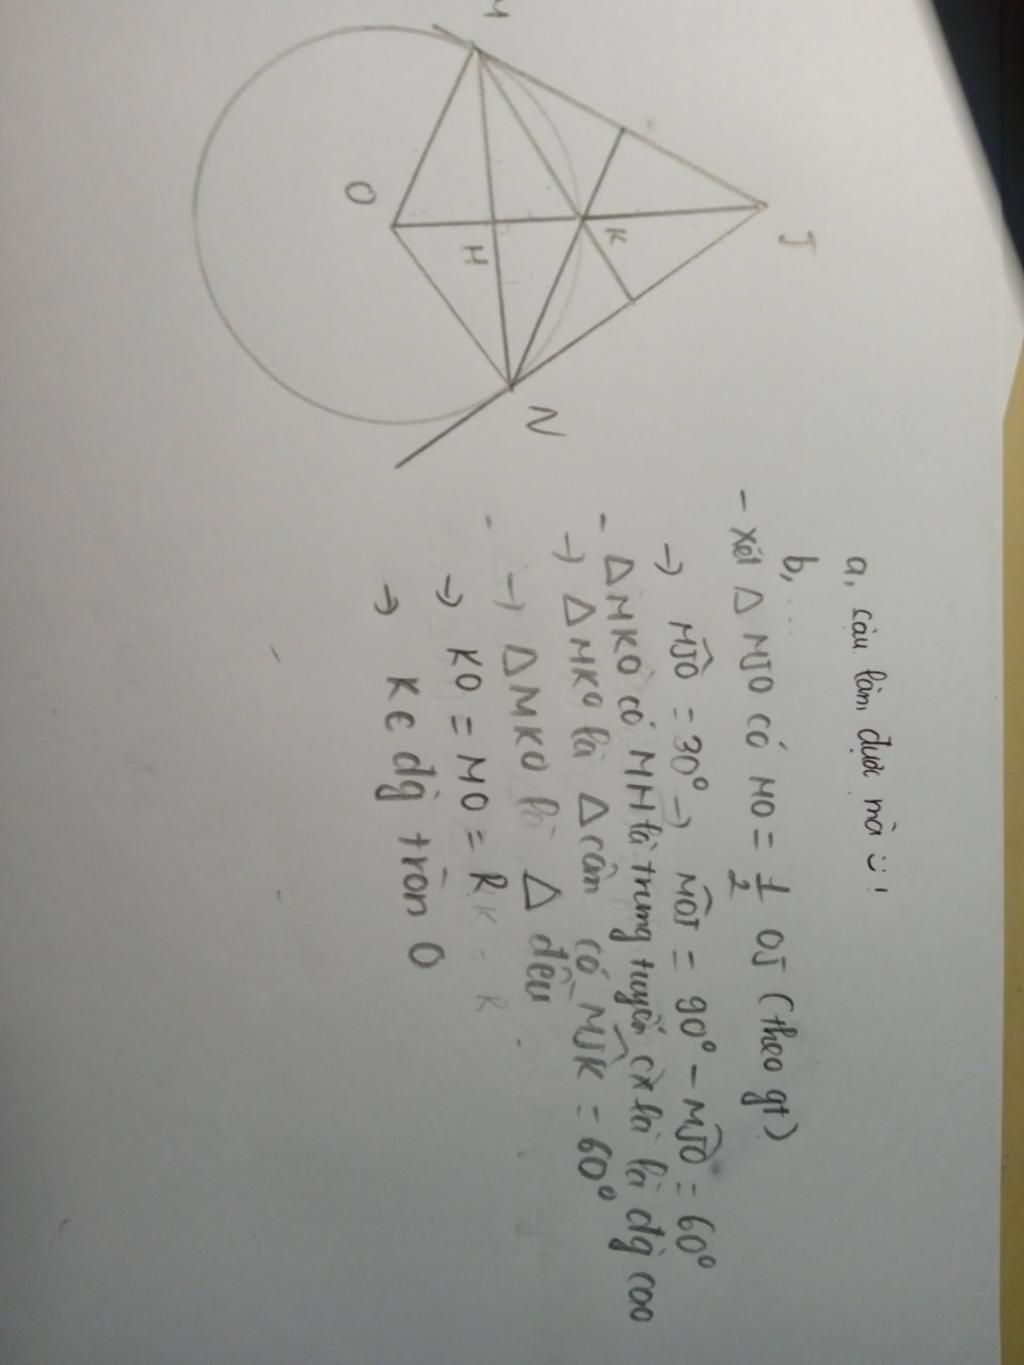 M
J
O
H
K
N
a, cậu làm được mà :) !
b, ....
- Xét Δ MJO có MO = 1/2 OJ (theo gt)
→ MJO = 30° → MOJ = 90° - MJO = 60°
- Δ MKO có MH là trung tuyến cx là là đg cao
→ Δ MKO là Δ cân có MJK = 60°
→ Δ MKO là Δ đều
→ KO = MO = R
→ K ∈ đg tròn O